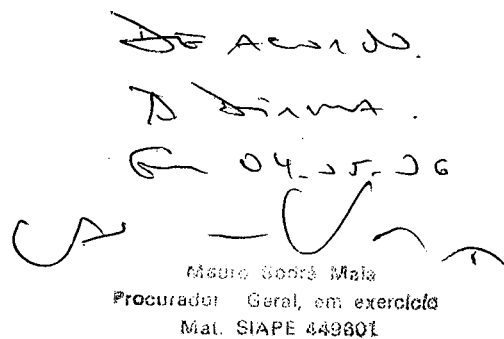 DE Acordo.
À
Em 04.05.06
Mauro Sodré Maia
Procurador Geral, em exercício
Mat. SIAPE 449801